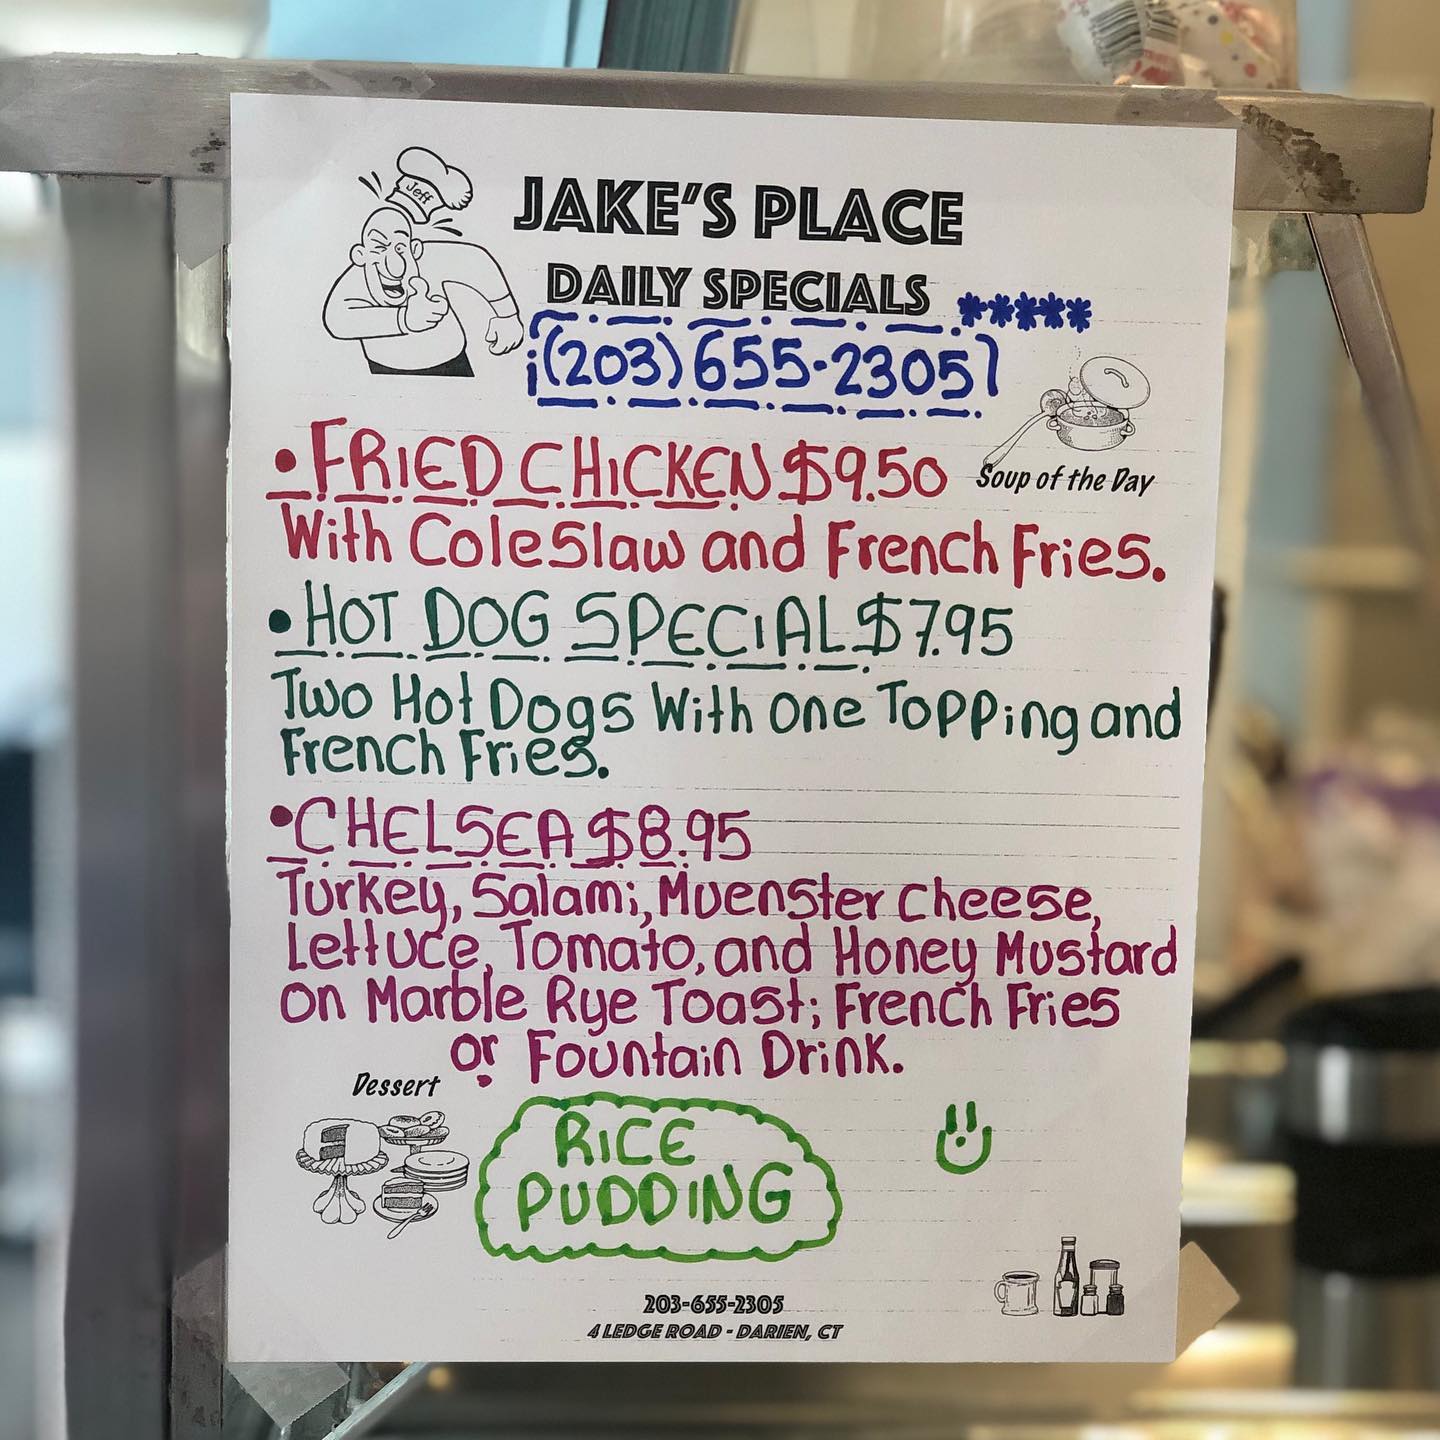 Jeff
JAKE'S PLACE
DAILY SPECIALS *****
(203)655-2305
• FRIED CHICKEN $9.50
Soup of the Day
With Coleslaw and French Fries.
• HOT DOG SPECIAL $7.95
Two Hot Dogs With one Topping and
French Fries.
• CHELSEA $8.95
Turkey, Salami, Muenster Cheese,
Lettuce, Tomato, and Honey Mustard
on Marble Rye Toast; French Fries
or Fountain Drink.
Dessert
RICE
PUDDING
203-655-2305
4 LEDGE ROAD - DARIEN, CT